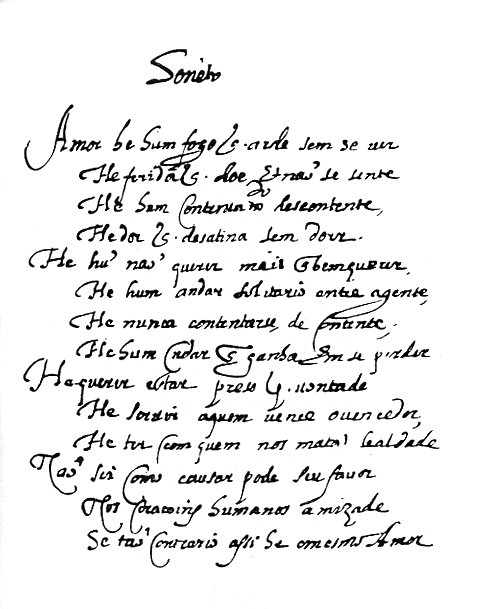 Sonèto
Amor he hum fogo q̃ arde sem se uer
He ferida q̃ doe, E naõ se sente
He hum Contentamto descontente,
He dor q̃ desatina sem doer.
He hũ naõ querer mais q̃ bemquerer,
He hum andar solitario entre agente,
He nunca contentarse, de Contente,
He hum Cudar q̃ ganha Em se perder
He querer estar preso p. uontade
He seruir aquem uence ouencedor,
He ter Com quem nos mata lealdade
Mas sir Como causar pode seu fauor
Nos Coracoins humanos amizade
Se taõ Contrario assi he omesmo Amor